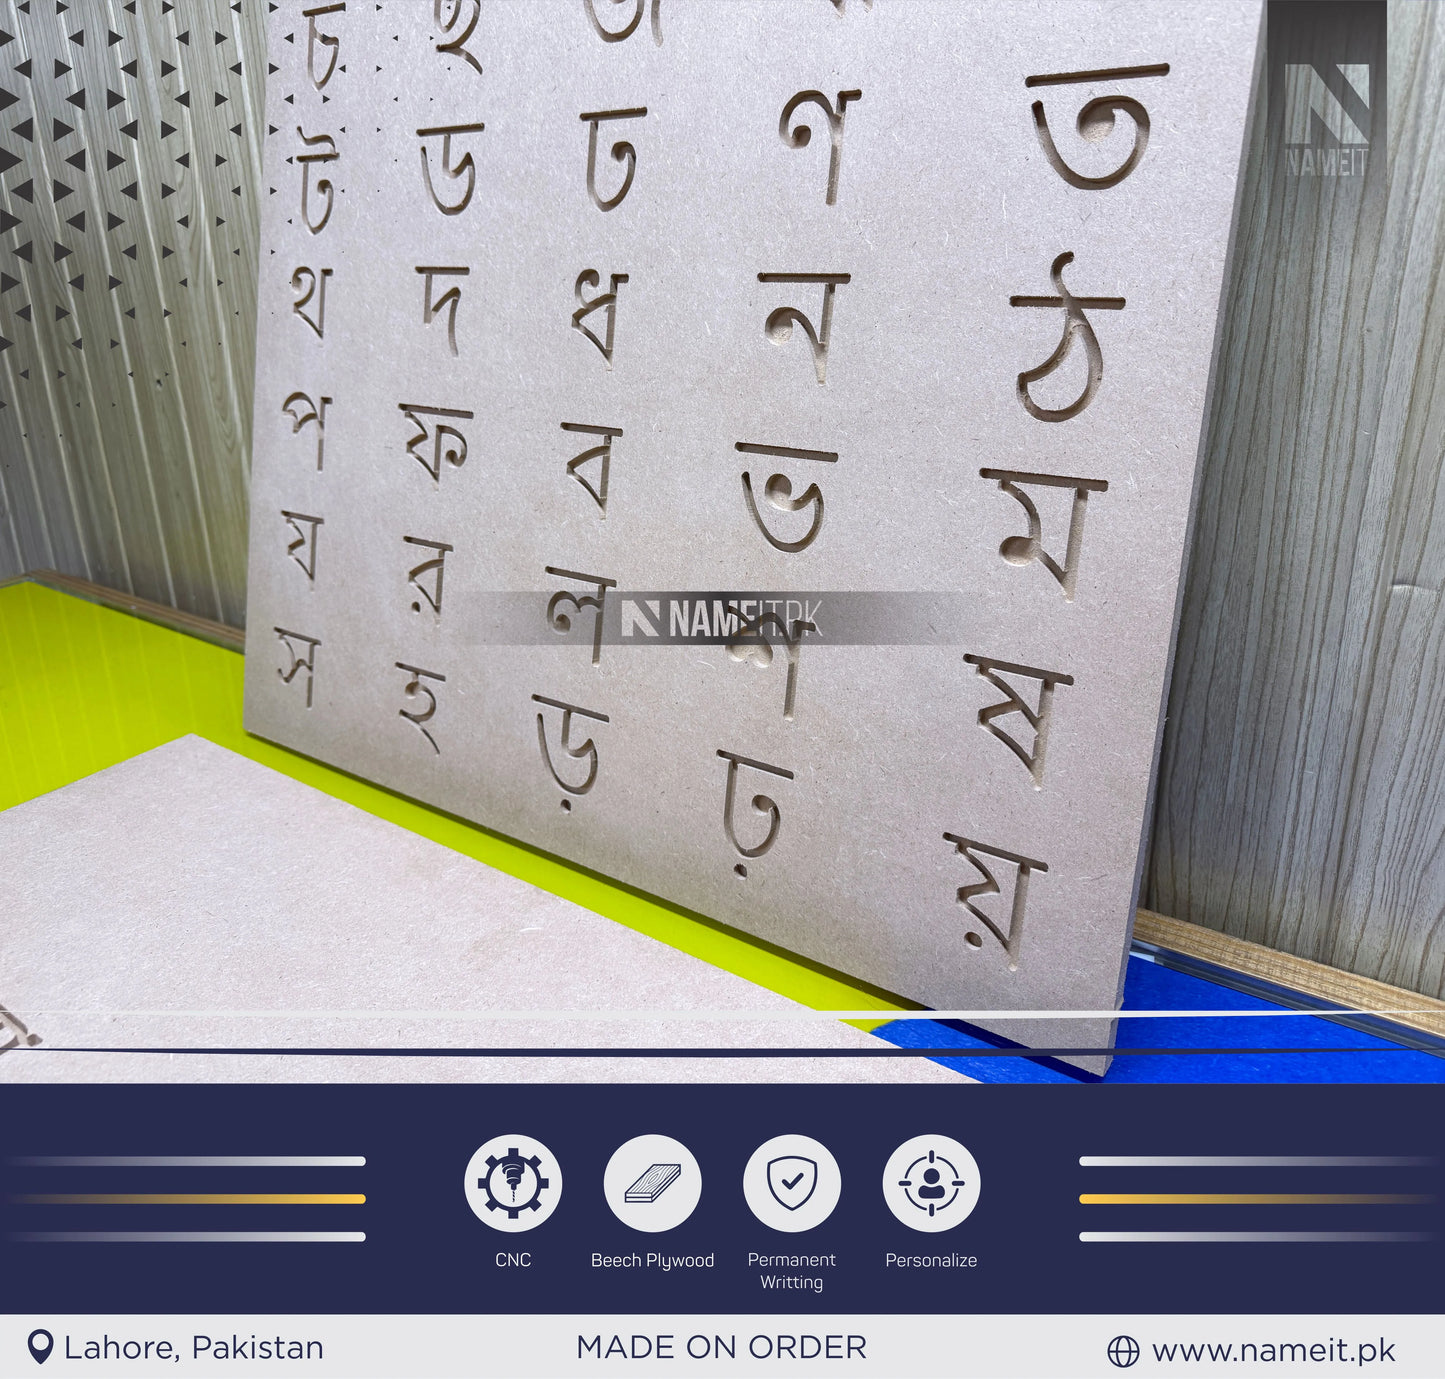 NAMEIT
চ ছ জ
ট ড ঢ ণ ত
থ দ ধ ন ঠ
প ফ ব ভ ম
য র ল শ ষ
স হ ড় ঢ় য়
NAMEIT.PK
CNC
Beech Plywood
Permanent
Writting
Personalize
Lahore, Pakistan
MADE ON ORDER
www.nameit.pk